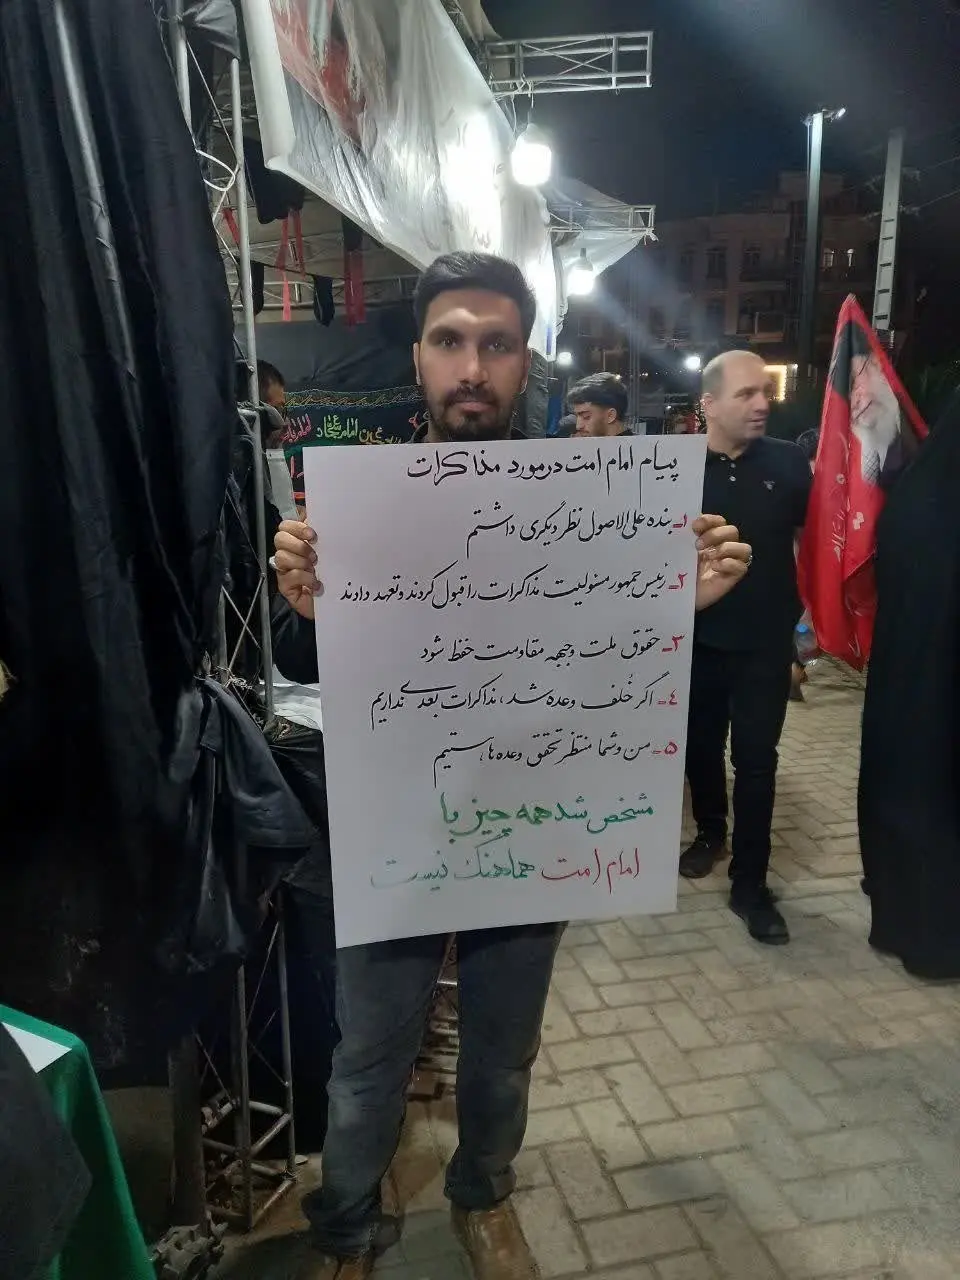 پیام امام امت درمورد مذاکرات
۱- بنده علی الاصول نظر دیگری داشتم
۲- رئیس جمهور مسئولیت مذاکرات را قبول کردند و تعهد دادند
۳- حقوق ملت و جبهه مقاومت حفظ شود
٤- اگر خُلف وعده شد، مذاکرات بعدی نداریم
۵- من و شما منتظر تحقق وعده ها هستیم
مشخص شد همه چیز با
امام امت هماهنگ نیست